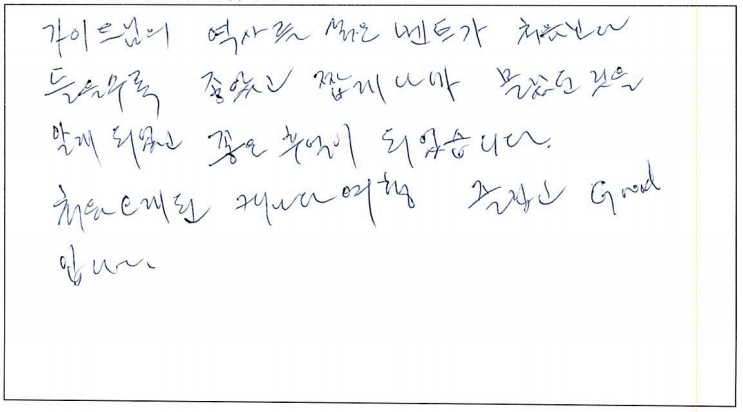 가이드님의 역사를 섞은 멘트가 처음보다
들을수록 좋았고 짧게나마 몰랐던 것을
알게 되었고 좋은 추억이 되었습니다.
처음 오게된 캐나다 여행 즐겁고 Good
입니다.